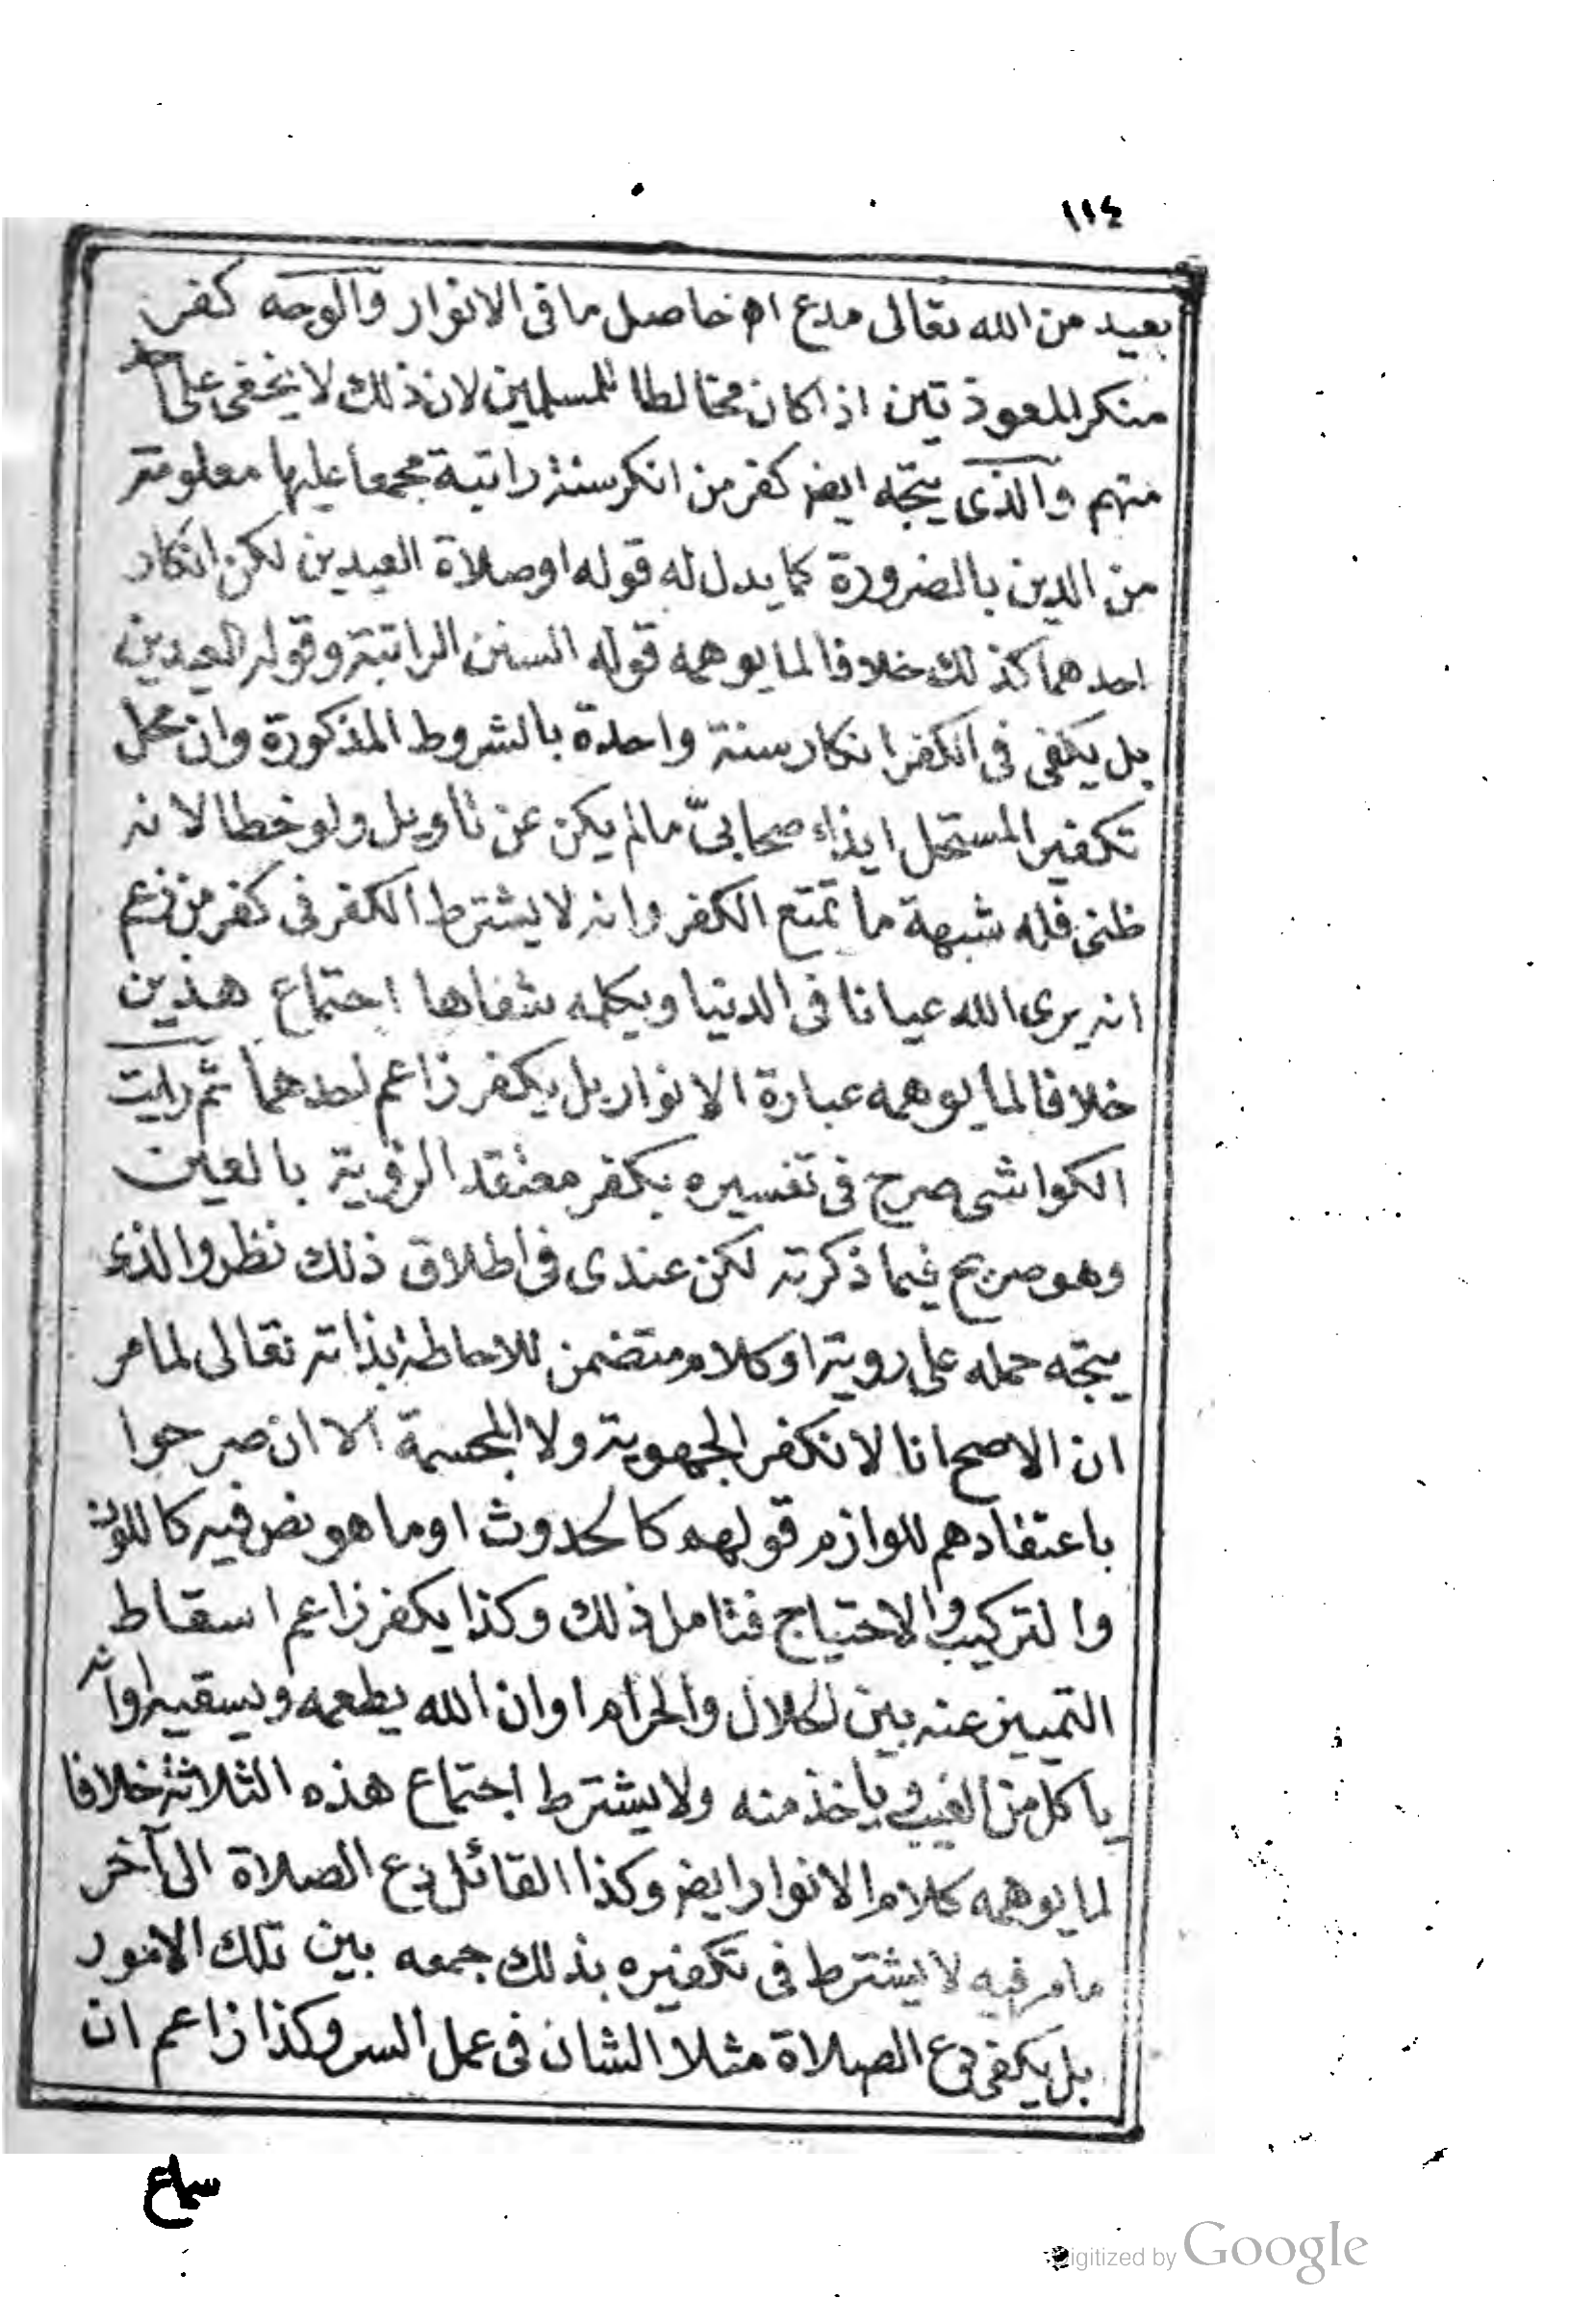 ١١٤
بعيد من الله تعالى مدع اه حاصل ما فى الانوار والوجه كفر
منكر المعوذتين اذا كان مخالطا للمسلمين لان ذلك لا يخفى على احد
منهم والذى يتجه ايضا كفر من انكر سنة راتبة مجمعا عليها معلومة
من الدين بالضرورة كما يدل له قوله او صلاة العيدين لكن انكار
احدهما كذلك خلافا لما يوهمه قوله السنن الراتبة وقوله العيدين
بل يكفى فى الكفر انكار سنة واحدة بالشروط المذكورة وان محل
تكفير المستحل ايذاء صحابىّ مالم يكن عن تاويل ولو خطا لانه
ظنى فله شبهة ما تمنع الكفر وانه لا يشترط الكفر فى كفر من زعم
انه يرى الله عيانا فى الدنيا ويكلمه شفاها اجتماع هذين
خلافا لما يوهمه عبارة الانوار بل يكفر زاعم احدهما ثم رايت
الكواشى صرح فى تفسيره بكفر معتقد الرؤية بالعين
وهو صريح فيما ذكرته لكن عندى فى اطلاق ذلك نظر والذى
يتجه حمله على روية او كلام متضمن للاحاطة بذاته تعالى لما مر
ان الاصح انا لا نكفر الجهوية ولا المجسمة الا ان صرحوا
باعتقادهم للوازم قولهم كالحدوث او ما هو نص فيه كاللون
والتركيب والاحتياج فتامل ذلك وكذا يكفر زاعم اسقاط
التمييز عنه بين الحلال والحرام او ان الله يطعمه ويسقيه او انه
ياكل من الغيب وياخذ منه ولا يشترط اجتماع هذه الثلاثة خلافا
لما يوهمه كلام الانوار ايضا وكذا القائل دع الصلاة الى آخر
ما مر فيه لا يشترط فى تكفيره بذلك جمعه بين تلك الامور
بل يكفى دع الصلاة مثلا الشان فى عمل السر وكذا زاعم ان
سماع
Digitized by Google